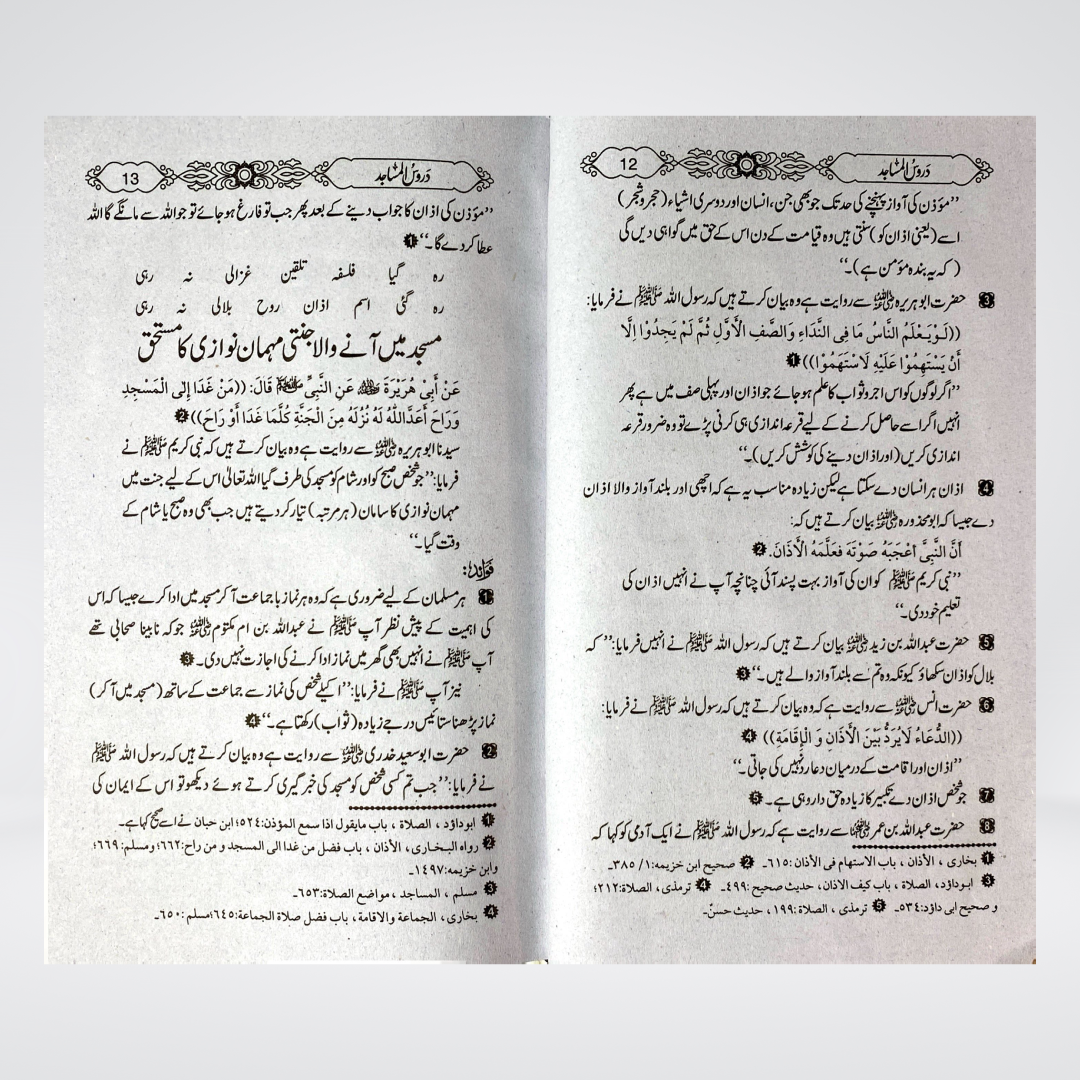 دروس المساجد 12
”مؤذن کی آواز پہنچنے کی حد تک جو بھی جن، انسان اور دوسری اشیاء (حجر و شجر)
اسے (یعنی اذان کو) سنتی ہیں وہ قیامت کے دن اس کے حق میں گواہی دیں گی
(کہ یہ بندہ مؤمن ہے)۔“
3 حضرت ابو ہریرہ رضی اللہ عنہ سے روایت ہے وہ بیان کرتے ہیں کہ رسول اللہ ﷺ نے فرمایا:
((لَوْ يَعْلَمُ النَّاسُ مَا فِى النَّدَاءِ وَالصَّفِ الْأَوَّلِ ثُمَّ لَمْ يَجِدُوْا إِلَّا
أَنْ يَسْتَهِمُوْا عَلَيْهِ لَاسْتَهَمُوْا)) 1
”اگر لوگوں کو اس اجر و ثواب کا علم ہو جائے جو اذان اور پہلی صف میں ہے پھر
انہیں اگر اسے حاصل کرنے کے لیے قرعہ اندازی ہی کرنی پڑے تو وہ ضرور قرعہ
اندازی کریں (اور اذان دینے کی کوشش کریں)۔“
4 اذان ہر انسان دے سکتا ہے لیکن زیادہ مناسب یہ ہے کہ اچھی اور بلند آواز والا اذان
دے جیسا کہ ابو محذورہ رضی اللہ عنہ بیان کرتے ہیں کہ:
أَنَّ النَّبِيَّ أَعْجَبَهُ صَوْتَهُ فَعَلَّمَهُ الْأَذَانَ. 2
”نبی کریم ﷺ کو ان کی آواز بہت پسند آئی چنانچہ آپ نے انہیں اذان کی
تعلیم خود دی۔“
5 حضرت عبداللہ بن زید رضی اللہ عنہ بیان کرتے ہیں کہ رسول اللہ ﷺ نے انہیں فرمایا: ”کہ
بلال کو اذان سکھاؤ کیونکہ وہ تم سے بلند آواز والے ہیں۔“ 3
6 حضرت انس رضی اللہ عنہ سے روایت ہے کہ وہ بیان کرتے ہیں کہ رسول اللہ ﷺ نے فرمایا:
((الدُّعَاءُ لَا يُرَدُّ بَيْنَ الْأَذَانِ وَ الْإِقَامَةِ)) 4
”اذان اور اقامت کے درمیان دعا رد نہیں کی جاتی۔“
7 جو شخص اذان دے تکبیر کا زیادہ حق دار وہی ہے۔ 5
8 حضرت عبداللہ بن عمر رضی اللہ عنہما سے روایت ہے کہ رسول اللہ ﷺ نے ایک آدمی کو کہا کہ
1 بخاری ، الأذان ، باب الاستهام فی الأذان: ٦١٥۔ 2 صحیح ابن خزیمه: ١/ ٣٨٥۔
3 ابوداؤد، الصلاة ، باب کیف الاذان، حدیث صحیح: ٤٩٩۔ 4 ترمذی ، الصلاة: ٢١٢؛
و صحیح ابی داؤد: ٥٣٤۔ 5 ترمذی ، الصلاة: ١٩٩ ، حدیث حسنٌ۔
دروس المساجد 13
”مؤذن کی اذان کا جواب دینے کے بعد پھر جب تو فارغ ہو جائے تو جو اللہ سے مانگے گا اللہ
عطا کر دے گا۔“ 1
رہ گیا فلسفہ تلقین غزالی نہ رہی
رہ گئی اسم اذان روح بلالی نہ رہی
مسجد میں آنے والا جنتی مہمان نوازی کا مستحق
عَنْ أَبِيْ هُرَيْرَةَ رضی اللہ عنہ عَنِ النَّبِيِّ ﷺ قَالَ: ((مَنْ غَدَا إِلَى الْمَسْجِدِ
وَرَاحَ أَعَدَّ اللّٰهُ لَهُ نُزُلَهُ مِنَ الْجَنَّةِ كُلَّمَا غَدَا أَوْ رَاحَ)) 2
سیدنا ابو ہریرہ رضی اللہ عنہ سے روایت ہے وہ بیان کرتے ہیں کہ نبی کریم ﷺ نے
فرمایا: ”جو شخص صبح کو اور شام کو مسجد کی طرف گیا اللہ تعالیٰ اس کے لیے جنت میں
مہمان نوازی کا سامان (ہر مرتبہ) تیار کر دیتے ہیں جب بھی وہ صبح یا شام کے
وقت گیا۔“
فوائد:
1 ہر مسلمان کے لیے ضروری ہے کہ وہ ہر نماز با جماعت آ کر مسجد میں ادا کرے جیسا کہ اس
کی اہمیت کے پیش نظر آپ ﷺ نے عبداللہ بن ام مکتوم رضی اللہ عنہ جو کہ نابینا صحابی تھے
آپ ﷺ نے انہیں بھی گھر میں نماز ادا کرنے کی اجازت نہیں دی۔ 3
نیز آپ ﷺ نے فرمایا: ”اکیلے شخص کی نماز سے جماعت کے ساتھ (مسجد میں آ کر)
نماز پڑھنا ستائیس درجے زیادہ (ثواب) رکھتا ہے۔“ 4
2 حضرت ابو سعید خدری رضی اللہ عنہ سے روایت ہے وہ بیان کرتے ہیں کہ رسول اللہ ﷺ
نے فرمایا: ”جب تم کسی شخص کو مسجد کی خبر گیری کرتے ہوئے دیکھو تو اس کے ایمان کی
1 ابوداؤد ، الصلاة ، باب مایقول اذا سمع المؤذن: ٥٢٤؛ ابن حبان نے اسے صحیح کہا ہے۔
2 رواه البخاری ، الأذان ، باب فضل من غدا الی المسجد و من راح: ٦٦٢؛ ومسلم: ٦٦٩؛
وابن خزیمه: ١٤٩٧۔
3 مسلم ، المساجد ، مواضع الصلاة: ٦٥٣۔
4 بخاری ، الجماعة والاقامة ، باب فضل صلاة الجماعة: ٦٤٥؛ مسلم: ٦٥٠۔